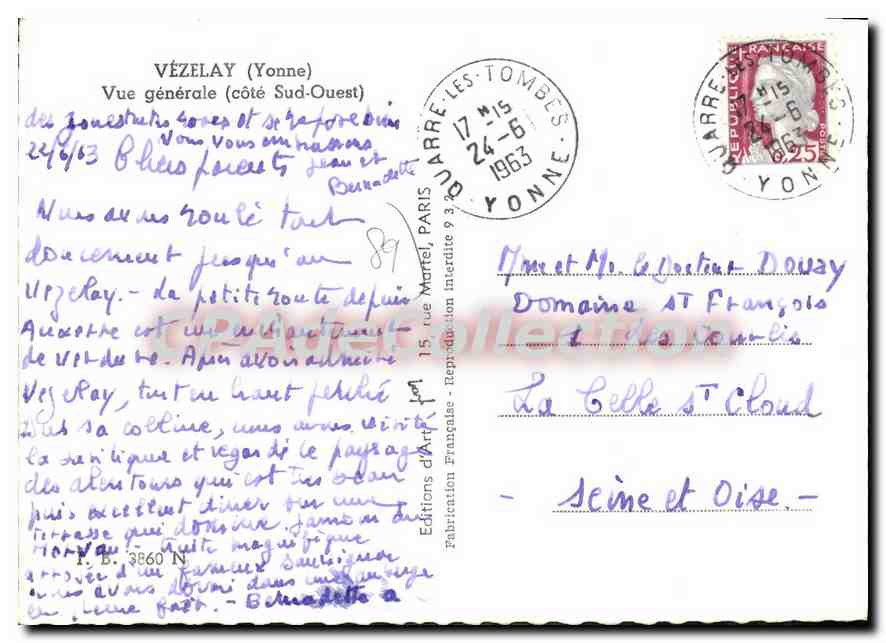 VÉZELAY (Yonne)
Vue générale (côté Sud-Ouest)
des
Nous vous embrassons
22/6/63 Chers parents Jean et
Bernadette
Nous avons roulé tout
doucement jusqu'au
Vézelay. - La petite route depuis
Auxerre est un enchantement
de verdure. Après avoir admiré
Vézelay, tout en haut perché
sur sa colline, nous avons visité
la basilique et regardé le paysage
des alentours qui est très beau
puis excellent dîner sur une
terrasse qui domine. Jambon du
Morvan - truite magnifique
arrosée d'un fameux
nous avons dormi dans une auberge
en pleine forêt. - Bernadette a
P. B. 3860 N
89
Editions d'Art 15, rue Martel, PARIS
Fabrication Française - Reproduction Interdite 9 3.2
QUARRE-LES-TOMBES
17 H 15
24-6
1963
YONNE
RÉPUBLIQUE FRANÇAISE
0,25
POSTES
QUARRE-LES-TOMBES
17 H 15
24-6
1963
YONNE
Mme et Mr. le Docteur Douay
Domaine St François
1 des
La Celle St Cloud
- Seine et Oise. -
CPAdeCollection